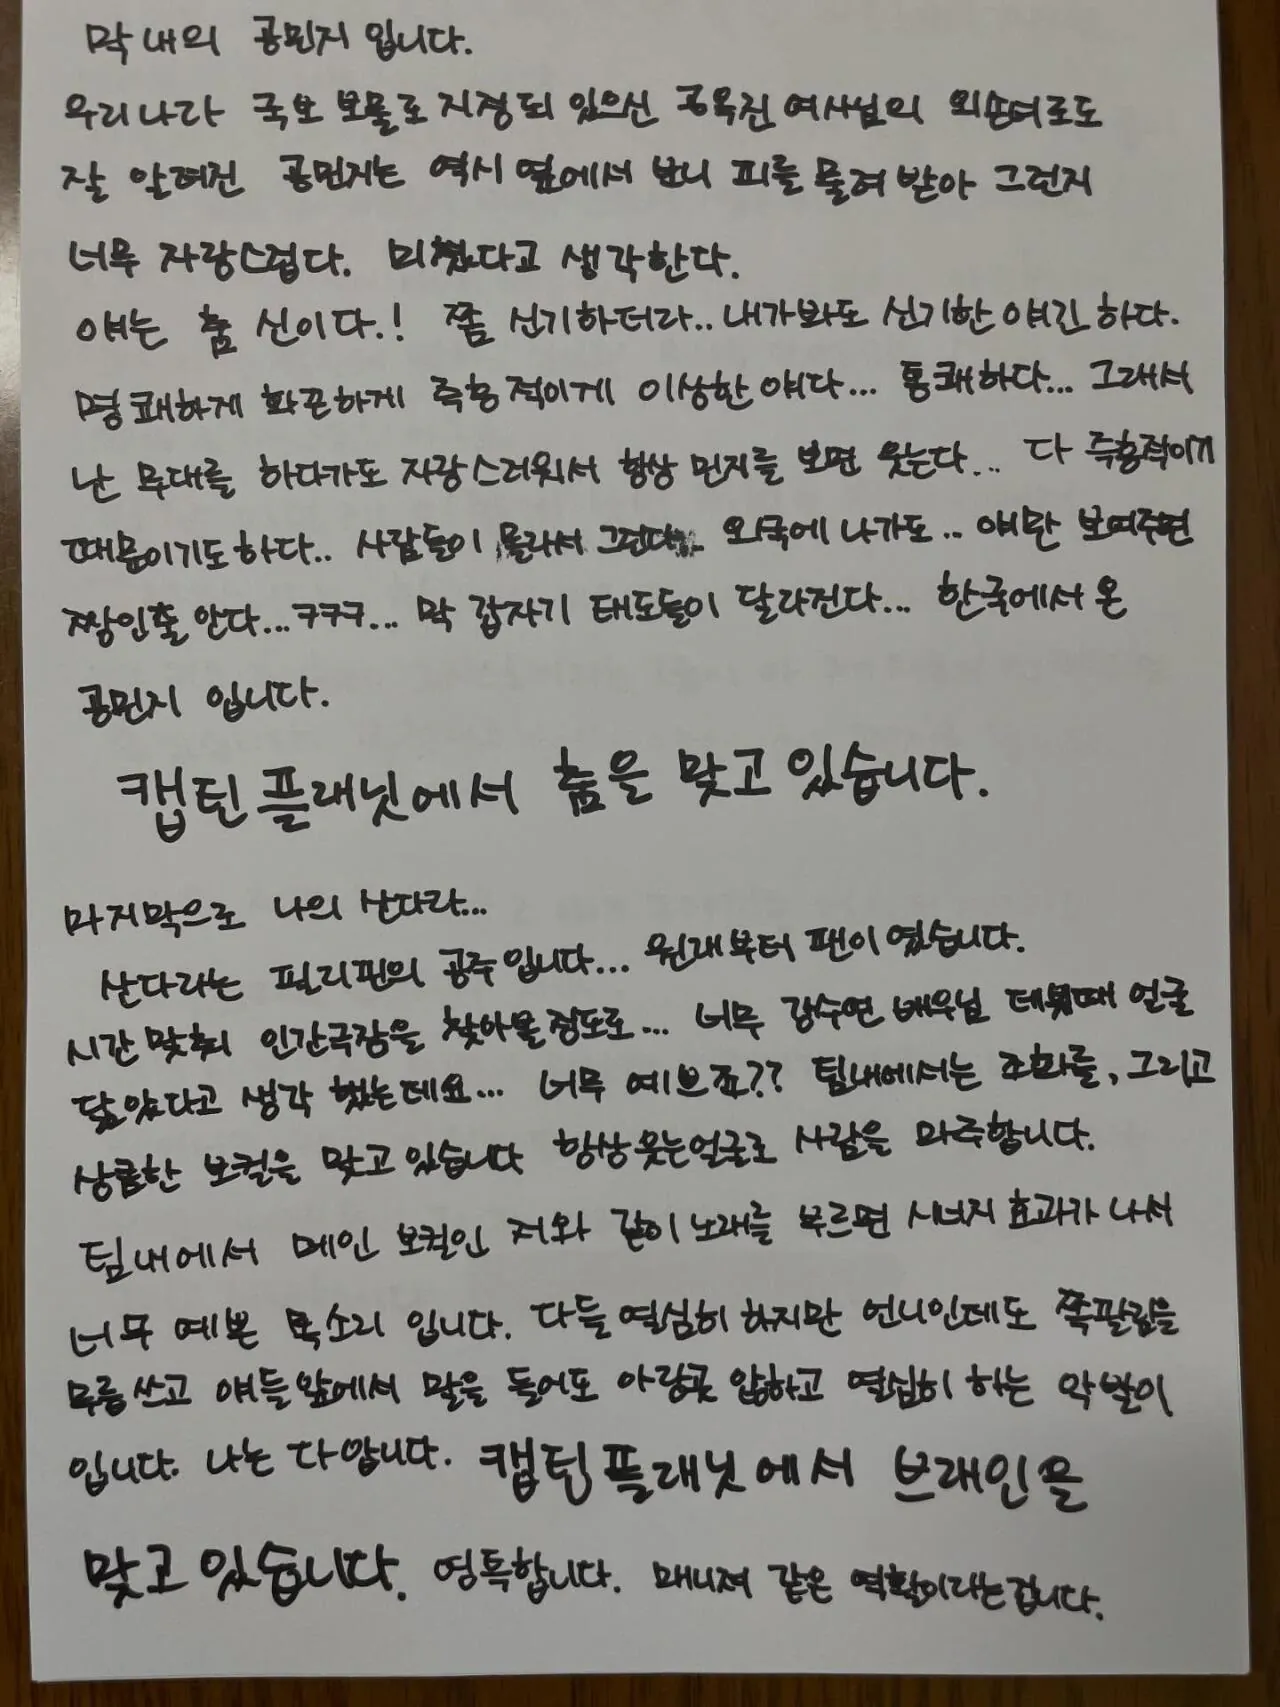 막내의 공민지 입니다.
우리나라 국보 보물로 지정되 있으신 공옥진 여사님의 외손녀로도
잘 알려진 공민지는 역시 옆에서 보니 피를 물려 받아 그런지
너무 자랑스럽다. 미쳤다고 생각한다.
얘는 춤 신이다.! 쫌 신기하더라.. 내가봐도 신기한 얘긴 하다.
명쾌하게 화끈하게 즉흥적이게 이상한 얘다... 통쾌하다... 그래서
난 무대를 하다가도 자랑스러워서 항상 민지를 보면 웃는다... 다 즉흥적이기
때문이기도하다.. 사람들이 몰라서 그런다.. 외국에 나가도.. 얘만 보여주면
짱인줄 안다...ㅋㅋㅋ... 막 갑자기 태도들이 달라진다... 한국에서 온
공민지 입니다.
캡틴플래닛에서 춤을 맞고 있습니다.
마지막으로 나의 산다라...
산다라는 필리핀의 공주입니다... 원래부터 팬이 였습니다.
시간 맞춰 인간극장을 찾아볼정도로... 너무 강수연 배우님 데뷔때 얼굴
닮았다고 생각 했는데요... 너무 예쁘죠?? 팀내에서는 조화를, 그리고
상큼한 보컬을 맞고 있습니다 항상웃는얼굴로 사람을 마주합니다.
팀내에서 메인 보컬인 저와 같이 노래를 부르면 시너지 효과가 나서
너무 예쁜 목소리 입니다. 다들 열심히 하지만 언니인데도 쪽팔림을
무릅쓰고 얘들 앞에서 말을 들어도 아랑곳 않하고 열심히 하는 악발이
입니다. 나는 다 압니다. 캡틴플래닛에서 브래인을
맞고 있습니다. 영특합니다. 매니져 같은 역활이라는겁니다.